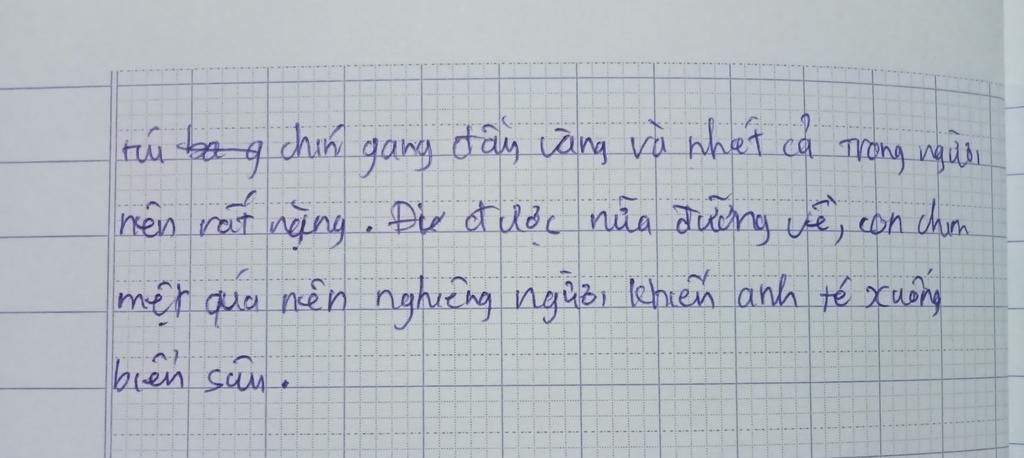 túi chín gang đầy vàng và nhét cả trong người
nên rất nặng. Đi được nửa đường về, con chim
mệt quá nên nghiêng người khiến anh té xuống
biển sâu.